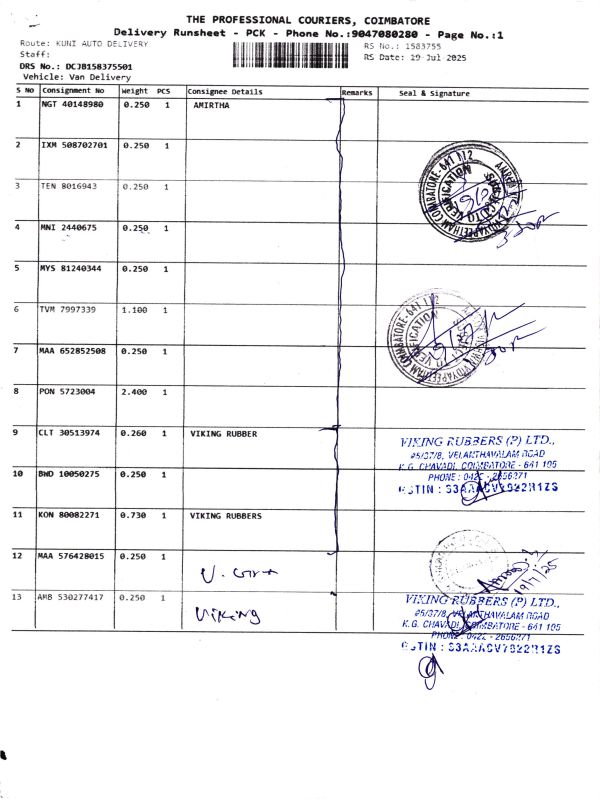 THE PROFESSIONAL COURIERS, COIMBATORE
Delivery Runsheet - PCK - Phone No.:9047080280 - Page No.:1
Route: KUNI AUTO DELIVERY
RS No.: 1583755
Staff:
RS Date: 19 Jul 2025
DRS No.: DCJB158375501
Vehicle: Van Delivery
S No Consignment No Weight PCS Consignee Details Remarks Seal & Signature
1 NGT 40148980 0.250 1 AMIRTHA
2 IXM 508702701 0.250 1
3 TEN 8016943 0.250 1
4 MNI 2440675 0.250 1
5 MYS 81240344 0.250 1
6 TVM 7997339 1.100 1
7 MAA 652852508 0.250 1
8 PON 5723004 2.400 1
9 CLT 30513974 0.260 1 VIKING RUBBER
VIKING RUBBERS (P) LTD.,
#5/37/8, VELANTHAVALAM ROAD
K.G. CHAVADI, COIMBATORE - 641 105
PHONE : 0422 - 2656271
GSTIN : 33AAACV7922R1ZS
10 BWD 10050275 0.250 1
11 KON 80082271 0.730 1 VIKING RUBBERS
12 MAA 576428015 0.250 1
19/7/25
13 AMB 530277417 0.250 1 Viking
VIKING RUBBERS (P) LTD.,
#5/37/8, VELANTHAVALAM ROAD
K.G. CHAVADI, COIMBATORE - 641 105
PHONE : 0422 - 2656271
GSTIN : 33AAACV7922R1ZS